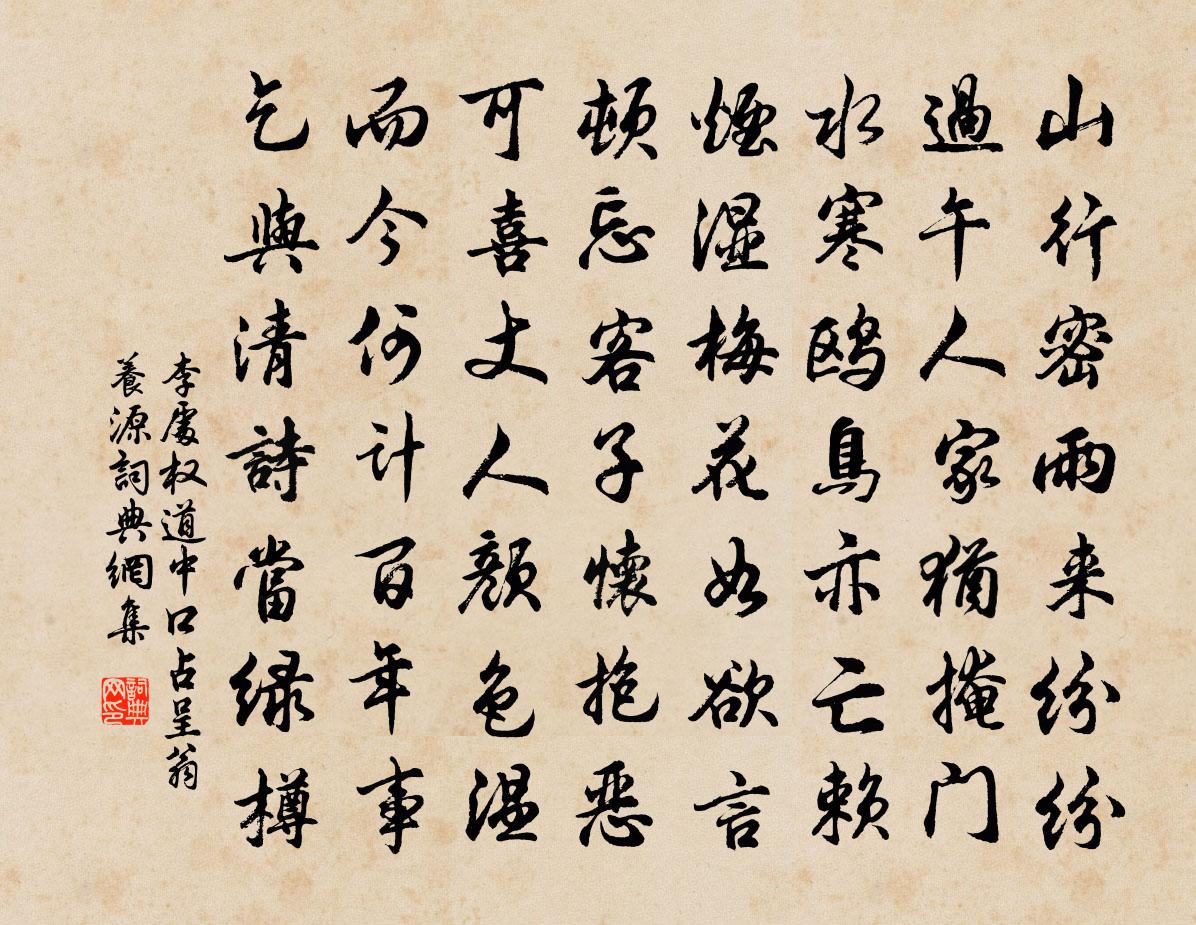 山行密雨来纷纷
過午人家猶掩门
水寒鸥鳥亦亡赖
煙湿梅花如欲言
顿忘客子懷抱恶
可喜丈人颜色温
而今何计百年事
乞與清詩當绿樽
李處权道中口占呈翁
養源詞典網集
詞典网印